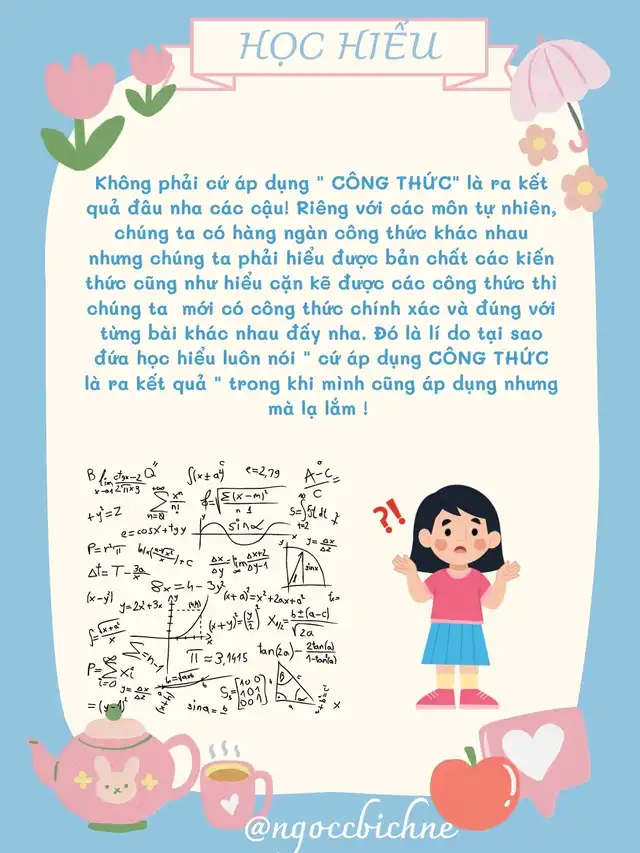 HỌC HIỂU
Không phải cứ áp dụng " CÔNG THỨC" là ra kết
quả đâu nha các cậu! Riêng với các môn tự nhiên,
chúng ta có hàng ngàn công thức khác nhau
nhưng chúng ta phải hiểu được bản chất các kiến
thức cũng như hiểu cặn kẽ được các công thức thì
chúng ta mới có công thức chính xác và đúng với
từng bài khác nhau đấy nha. Đó là lí do tại sao
đứa học hiểu luôn nói " cứ áp dụng CÔNG THỨC
là ra kết quả " trong khi mình cũng áp dụng nhưng
mà lạ lắm !
?!
e=2,79
+y²=Z
e=cosx+tgy
sinα
8x=4-3y²
y=2x+3x
(x+a)²=x²+2ax+a²
π≈3,1415
@ngoccbichne